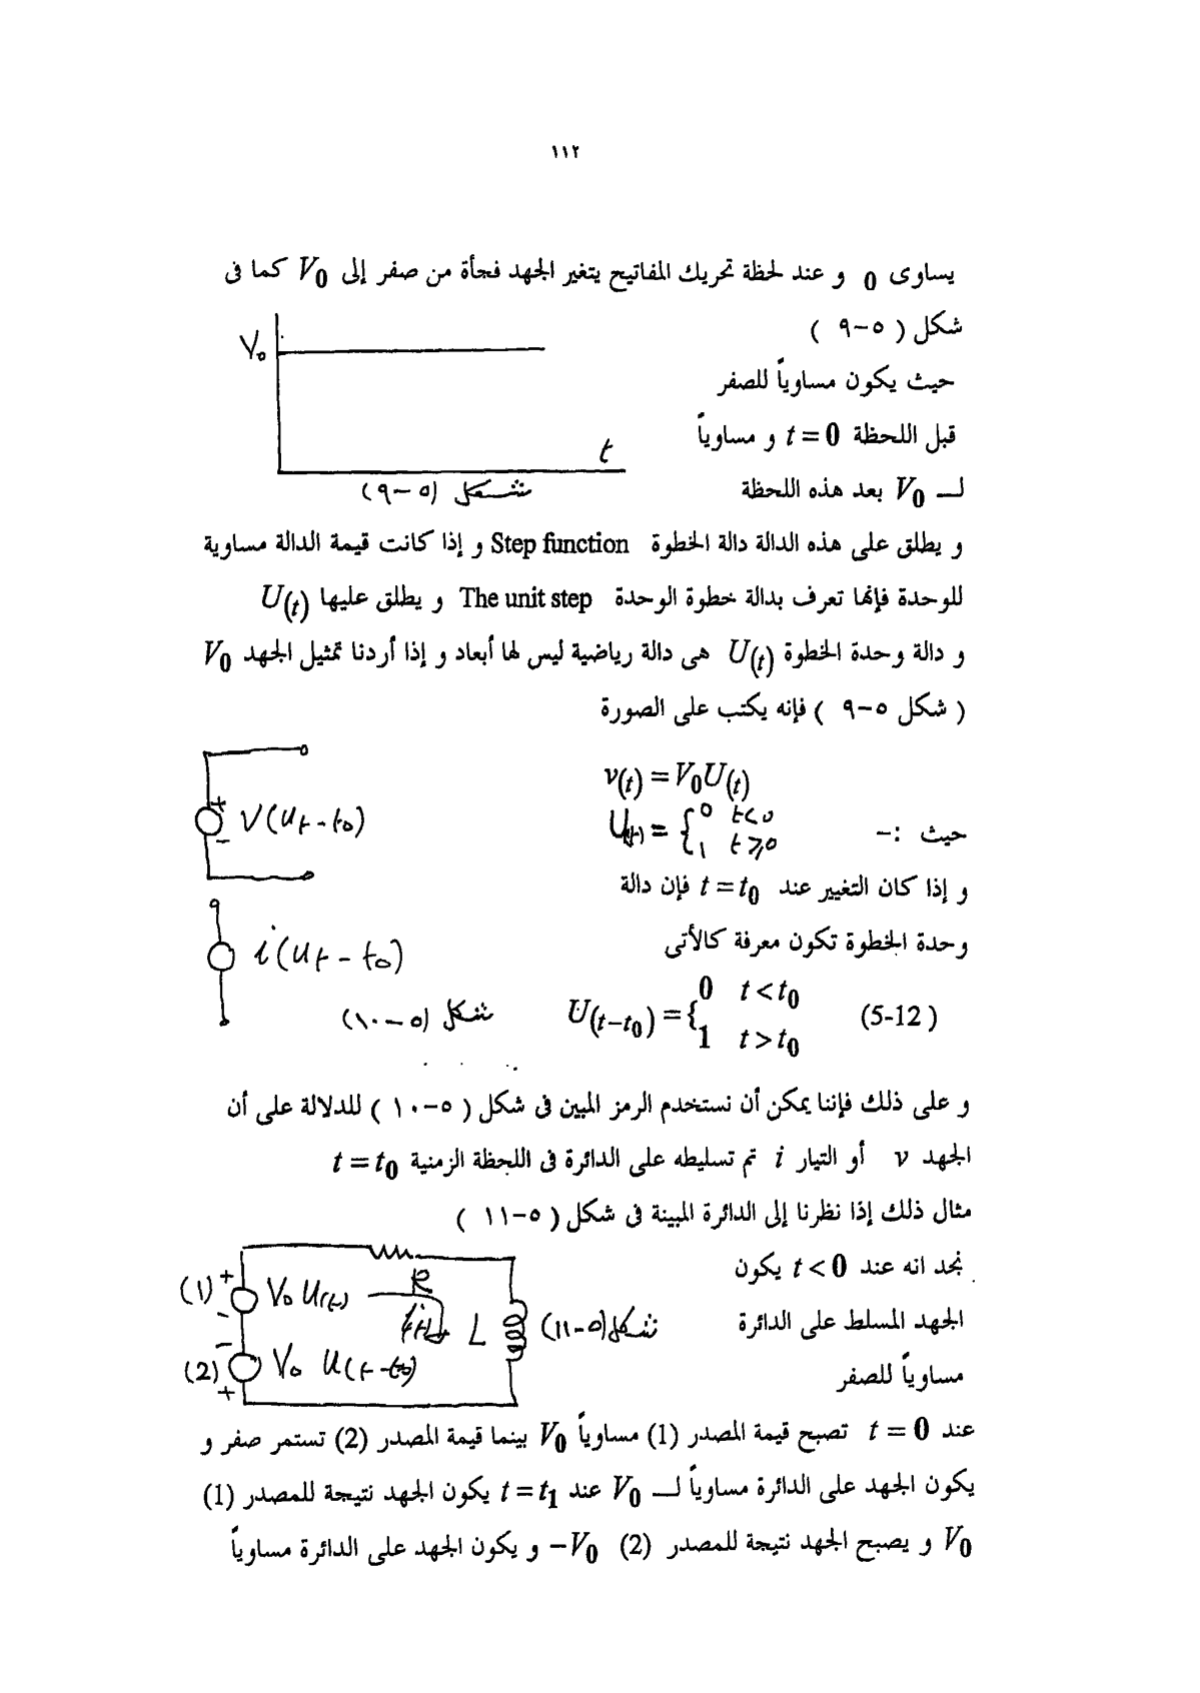 ١١٢
يساوى 0 و عند لحظة تحريك المفاتيح يتغير الجهد فجأة من صفر إلى V0 كما فى
شكل ( ٥-٩ )
V₀
حيث يكون مساوياً للصفر
قبل اللحظة t = 0 و مساوياً
t
لــ V0 بعد هذه اللحظة
شكل (٥-٩)
و يطلق على هذه الدالة دالة الخطوة Step function و إذا كانت قيمة الدالة مساوية
للوحدة فإنها تعرف بدالة خطوة الوحدة The unit step و يطلق عليها U(t)
و دالة وحدة الخطوة U(t) هى دالة رياضية ليس لها أبعاد و إذا أردنا تمثيل الجهد V0
( شكل ٥-٩ ) فإنه يكتب على الصورة
v(t) = V0U(t)
حيث :- U(t) = { 0 t<0
1 t≥0
+ V(Ut-t₀)
-
و إذا كان التغيير عند t = t0 فإن دالة
وحدة الخطوة تكون معرفة كالأتى
i(Ut-t₀)
(5-12 ) U(t-t0) = { 0 t < t0
1 t > t0
شكل (٥-١٠)
و على ذلك فإننا يمكن أن نستخدم الرمز المبين فى شكل ( ٥-١٠ ) للدلالة على أن
الجهد v أو التيار i تم تسليطه على الدائرة فى اللحظة الزمنية t = t0
مثال ذلك إذا نظرنا إلى الدائرة المبينة فى شكل ( ٥-١١ )
نجد انه عند t < 0 يكون
(1) + V₀ U(t) R
-
الجهد المسلط على الدائرة
شكل (٥-١١)
i(t) L
مساوياً للصفر
-
(2) V₀ U(t-t₀)
+
عند t = 0 تصبح قيمة المصدر (1) مساوياً V0 بينما قيمة المصدر (2) تستمر صفر و
يكون الجهد على الدائرة مساوياً لــ V0 عند t = t1 يكون الجهد نتيجة للمصدر (1)
V0 و يصبح الجهد نتيجة للمصدر (2) −V0 و يكون الجهد على الدائرة مساوياً